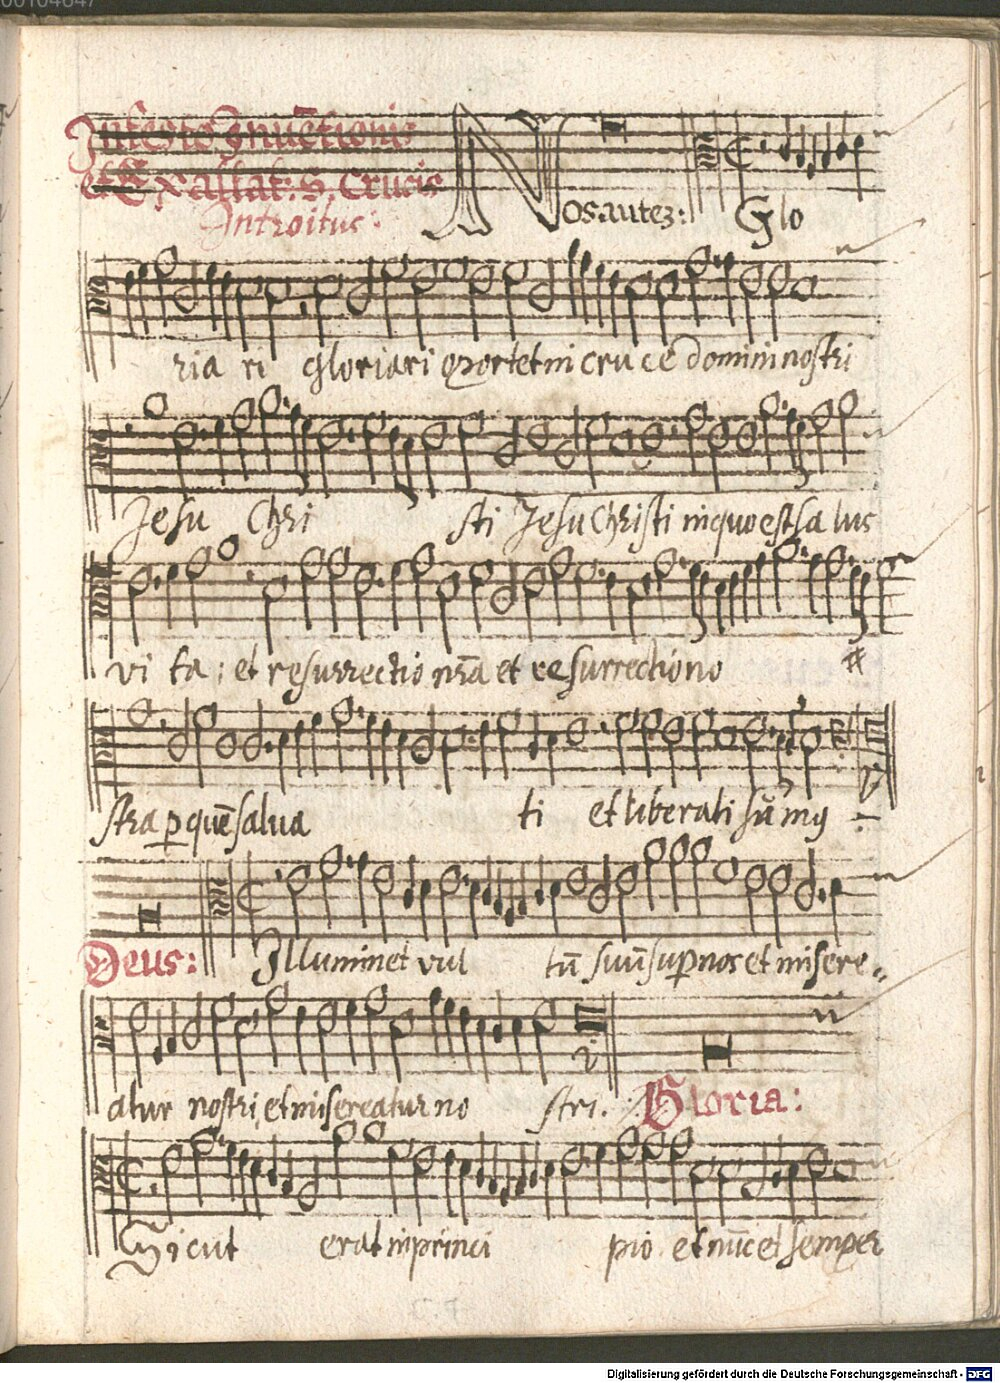 00104847
In festo Inuētionis
et Exaltat: S. Crucis
Introitus:
Nos autez: Glo
ria ri gloriari oportet in cruce domini nostri
Jesu Chri sti Jesu Christi in quo est sa lus
vi ta : et resurrectio nr̄a et resurrectio no
stra p quē salua ti et liberati sūmus
Deus: Illuminet vul tū suū sup nos et misere
atur nostri, et misereatur no stri. Gloria:
Sicut erat in princi pio et nūc et semper
Digitalisierung gefördert durch die Deutsche Forschungsgemeinschaft - DFG